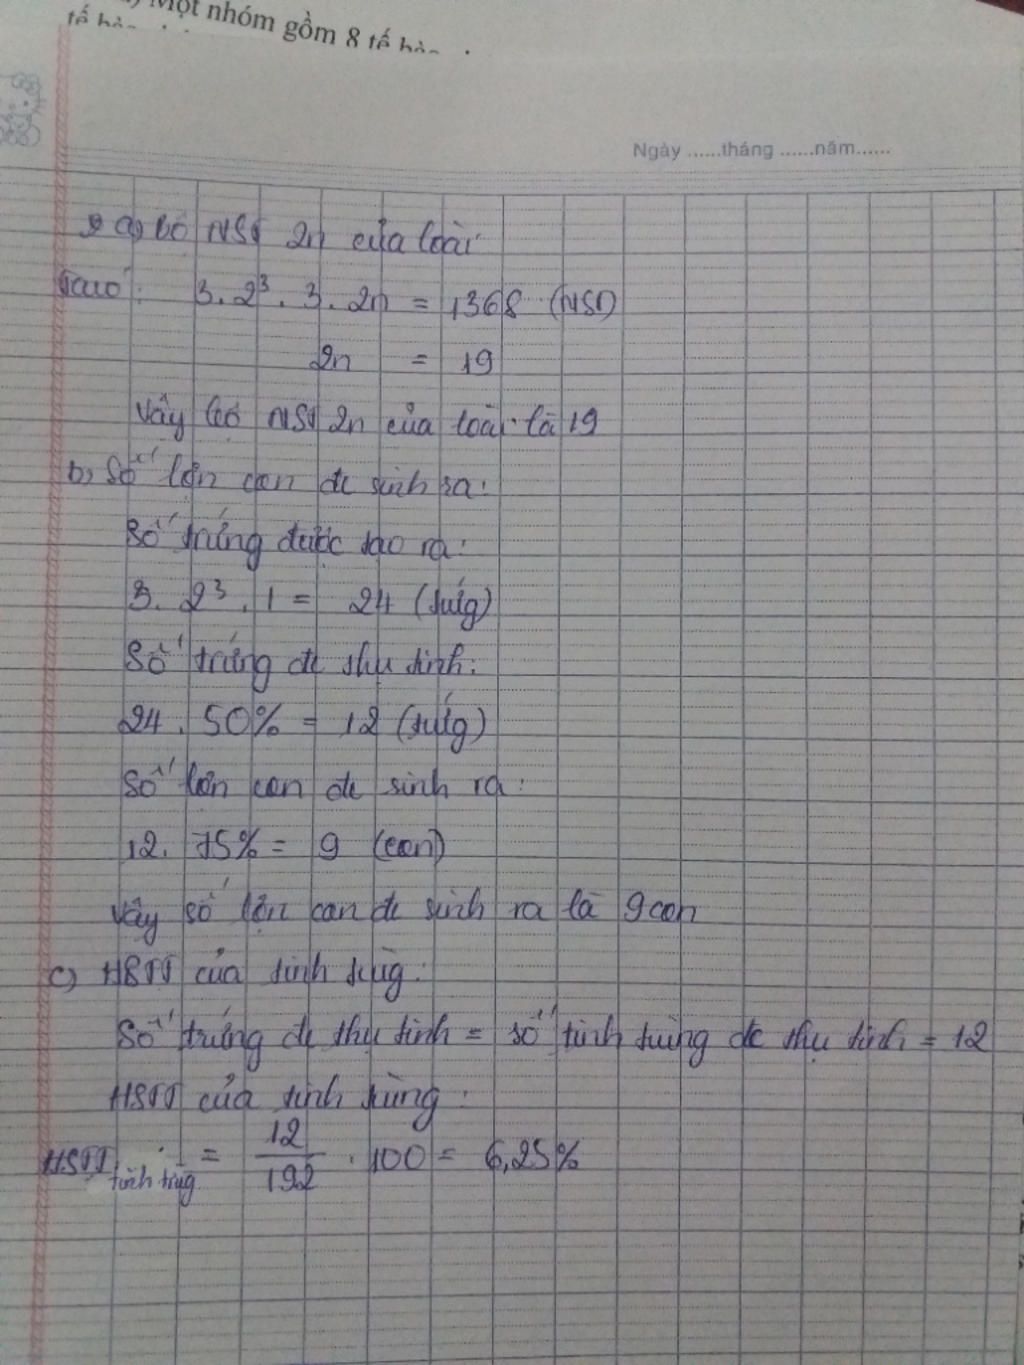 Một nhóm gồm 8 tế bào
Ngày ......tháng ......năm......
2 a) bộ NST 2n của loài
Ta có: 3. 2³. 3. 2n = 1368 (NST)
2n = 19
Vậy bộ NST 2n của loài là 19
b, Số lợn con đc sinh ra:
Số trứng được tạo ra:
3. 2³. 1 = 24 (trứg)
Số trứng đc thụ tinh:
24. 50% = 12 (trứg)
Số lợn con đc sinh ra:
12. 75% = 9 (con)
Vậy số lợn con đc sinh ra là 9 con
c) HSTT của tinh trùg:
Số trứng đc thụ tinh = số tinh trùng đc thụ tinh = 12
HSTT của tinh trùng:
HSTT tinh trùg = 12/192 . 100 = 6,25%